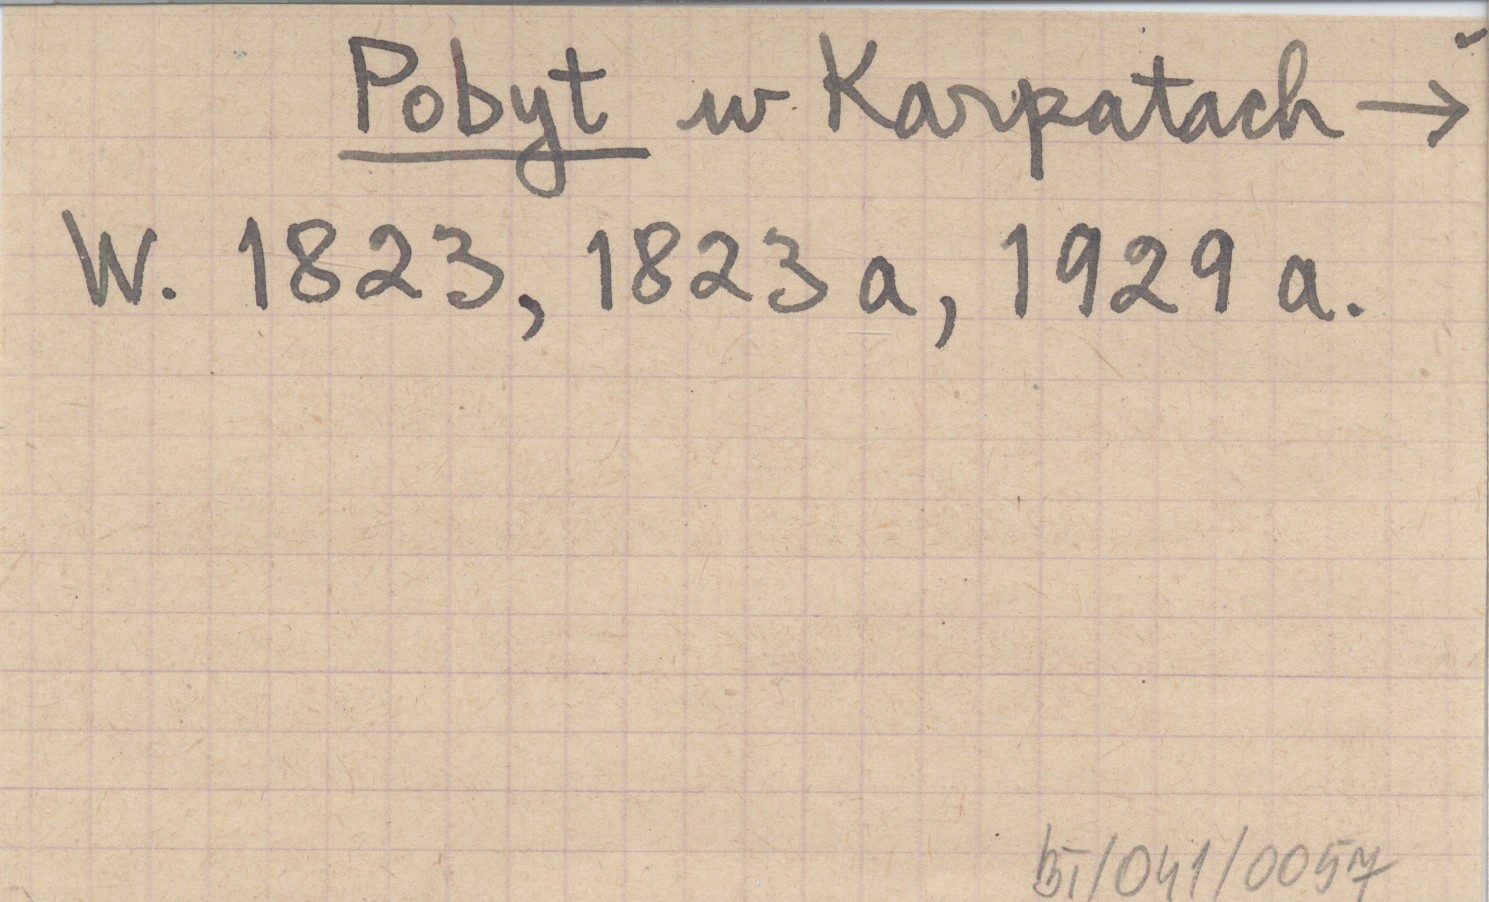 Pobyt w Karpatach →
W. 1823, 1823 a, 1929 a.
bI/041/0057